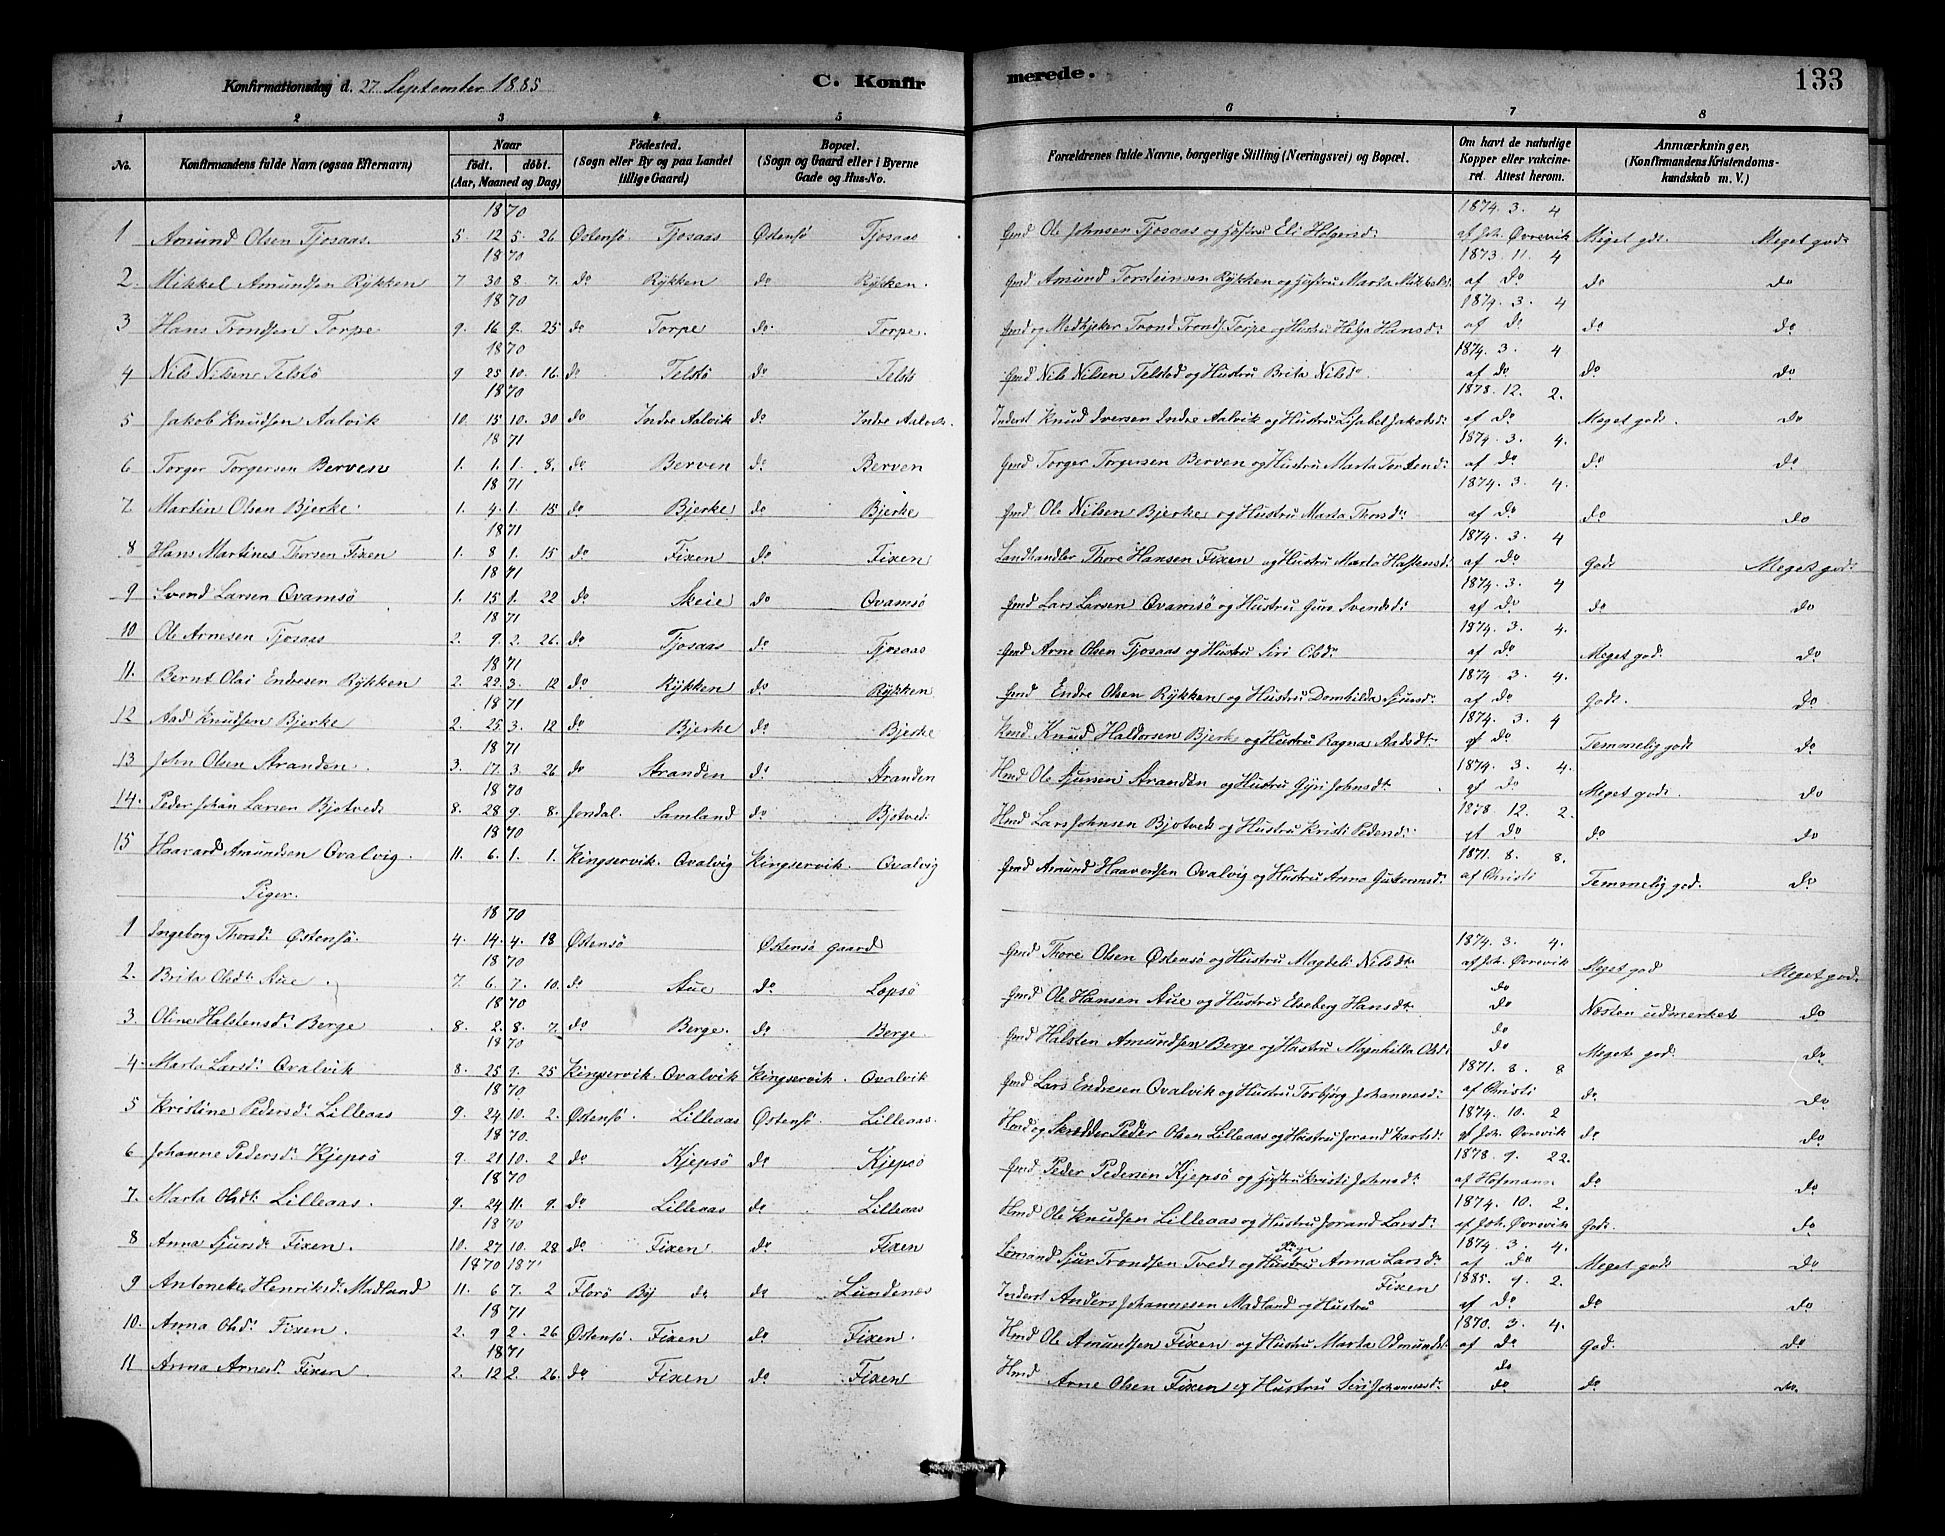 Konfirmationsdag d. 27 September 1885 C. Konfirmerede. 133
1 2 3 4 5 6 7 8
No. Konfirmandens fulde Navn (ogsaa Efternavn) Naar födt. döbt. (Aar, Maaned og Dag) Födested. (Sogn eller By og paa Landet tillige Gaard) Bopæl. (Sogn og Gaard eller i Byerne Gade og Hus-No. Forældrenes fulde Navne, borgerlige Stilling (Næringsvei) og Bopæl. Om havt de naturlige Kopper eller vakcineret. Attest herom. Anmærkninger, (Konfirmandens Kristendomskundskab m. V.)
1870 1874. 3. 4
1 Amund Olsen Tjosaas. 5. 12 5. 26 Østensö Tjosaas Østensö Tjosaas Gmd Ole Johnsen Tjosaas og Hustru Eli Holgersd: af Joh. Øvrevik Meget god. Meget god:
1870 1873. 11. 4
2. Mikkel Amundsen Rykken 7 30 8. 7. do Rykken do Rykken. Gmd Amund Torsteinsen Rykken og Hustru Marta Mikkelsd: af do do do
1870 1874. 3. 4
3 Hans Trondsen Torpe 9. 16 9. 25 do Torpe do Torpe. Gmd og Medhjelper Trond Tronds. Torpe og Hustru Helga Hansd: af do do do
1870 1874. 3. 4
4 Nils Nilsen Telstö 9 25 10. 16. do Telstö do Telstö Gmd Nils Nilsen Telstö og Hustru Brita Nilsd: af do do do
1870 1878. 12. 2.
5 Jakob Knudsen Aalvik 10. 15 10. 30 do Indre Aalvik do Indre Aalvik. Inderst Knud Iversen Indre Aalvik og Hustru Lisabet Jakobsd: af do Meget god. do
1871 1874. 3. 4.
6 Torger Torgersen Berven 1. 1. 1. 8. do Berven do Berven Gmd Torger Torgersen Berven og Hustru Marta Torstend: af do do do
1871 1874. 3. 4.
7 Martin Olsen Bjerke. 1. 4. 1. 15 do Bjerke do Bjerke Gmd Ole Nilsen Bjerke og Hustru Marta Thorsd: af do do do
1871 1874. 3. 4
8 Hans Martines Thorsen Fixen 1. 8 1. 15 do Fixen do Fixen Landhandler Thore Hansen Fixen og Hustru Marta Halstensd: af do God. Meget god:
1871 1874. 3. 4
9 Svend Larsen Qvamsö 1. 15 1. 22 do Skeie do Qvamsö Gmd Lars Larsen Qvamsö og Hustru Guro Svendsd: af do do do
1871 1874. 3. 4.
10 Ole Arnesen Tjosaas 2. 9 2. 26. do Tjosaas do Tjosaas Gmd Arne Olsen Tjosaas og Hustru Siri Olsd: af do Meget god. do
1871 1874. 3. 4.
11. Bernt Olai Endresen Rykken 2. 22 3. 12 do Rykken do Rykken Gmd Endre Olsen Rykken og Hustru Domhilda Sjursd: af do God. do
1871 1874. 3. 4
12 Aad Knudsen Bjerke 2. 25 3. 12 do Bjerke do Bjerke Hmd Knud Haldorsen Bjerke og Hustru Ragna Aadsdt. af do Temmelig god do
1871 1874. 3. 4.
13 John Olsen Stranden. 3. 17. 3. 26 do Stranden do Stranden Hmd Ole Sjursen Stranden og Hustru Gyri Johnsdt. af do Meget god. do
1870 1878. 12. 2.
14. Peder Johan Larsen Bjotveds 8. 28 9. 8. Jondal. Samland do Bjotved Hmd Lars Johnsen Bjotved og Hustru Kristi Pedersd: af do do do
1870 1871. 8. 8.
15 Haavard Amundsen Qvalvig. 11. 6 1. 1. Kingservik. Qvalvig Kingservik. Qvalvig Gmd Amund Haavardsen Qvalvig og Hustru Anna Guttormsd: af Christi Temmelig god. do
Piger.
1870 1874. 3. 4.
1 Ingeborg Thorsd: Østensö. 4. 14. 4. 18 Østensö Østensö Gaard Gmd Thore Olsen Østensö og Hustru Magdeli Nilsdt. af Joh. Øvrevik Meget god Meget god.
1870 do
2. Brita Olsdt. Aue. 7. 6 7. 10. do Aue do Lopsö Gmd Ole Hansen Aue og Hustru Elseberg Hansdt. do Næsten udmerket do
1870 do
3. Oline Halstensd: Berge 8. 2. 8. 7. do Berge. do Berge. Gmd Halsten Amundsen Berge og Hustru Magnhilda Olsd: do Meget god. do
1870 1871. 8. 8
4. Marta Larsd: Qvalvik 8. 25 9. 25 Kingservik. Qvalvik Kingservik. Qvalvik Gmd Lars Endresen Qvalvik og Hustru Torbjörg Johannesd: af Christi do. do
1870 1874. 10. 2
5 Kristine Pedersd: Lilleaas 9. 24 10. 2. Østensö. Lilleaas Østensö. Lilleaas. Hmd og Skrædder Peder Olsen Lilleaas og Hustru Jorand Larsd: af Joh. Øvrevik do do
1870. 1878. 9. 22.
6 Johanne Pedersd: Kjepsö 9. 21 10. 2 do Kjepsö do Kjepsö Gmd Peder Pedersen Kjepsö og Hustru Kristi Johnsdt. af Hofmann do do
1870 1874. 10. 2.
7. Marta Olsdt: Lilleaas. 9. 24 11. 9. do Lilleaas do Lilleaas Hmd Ole Knudsen Lilleaas og Hustru Jorand Larsd: af Joh. Øvrevik God. do
1870 1874. 3. 4.
8 Anna Sjursd: Fixen. 10. 27 10. 28 do Fixen do Fixen Sømand Sjur Trondsen Tveds og Pige Hustru Anna Larsd: Fixen af do Meget god do
1870 1871 1885. 9. 2.
9 Antoneke Henriksd: Madland 11. 6 7. 2 Florö By do do Lundenæs Inderst Anders Johannesen Madland og Hustru af do do do
1871 1870. 3. 4.
10. Anna Olsd: Fixen. 2. 9 2. 26 Østensö. Fixen do Fixen. Hmd Ole Amundsen Fixen og Hustru Marta Odmundsdt. af do God. do
1871 do
11 Anna Arnesd: Fixen. 2. 12 2. 26. do Fixen do Fixen Hmd Arne Olsen Fixen og Hustru Siri Johannesd: do do do.